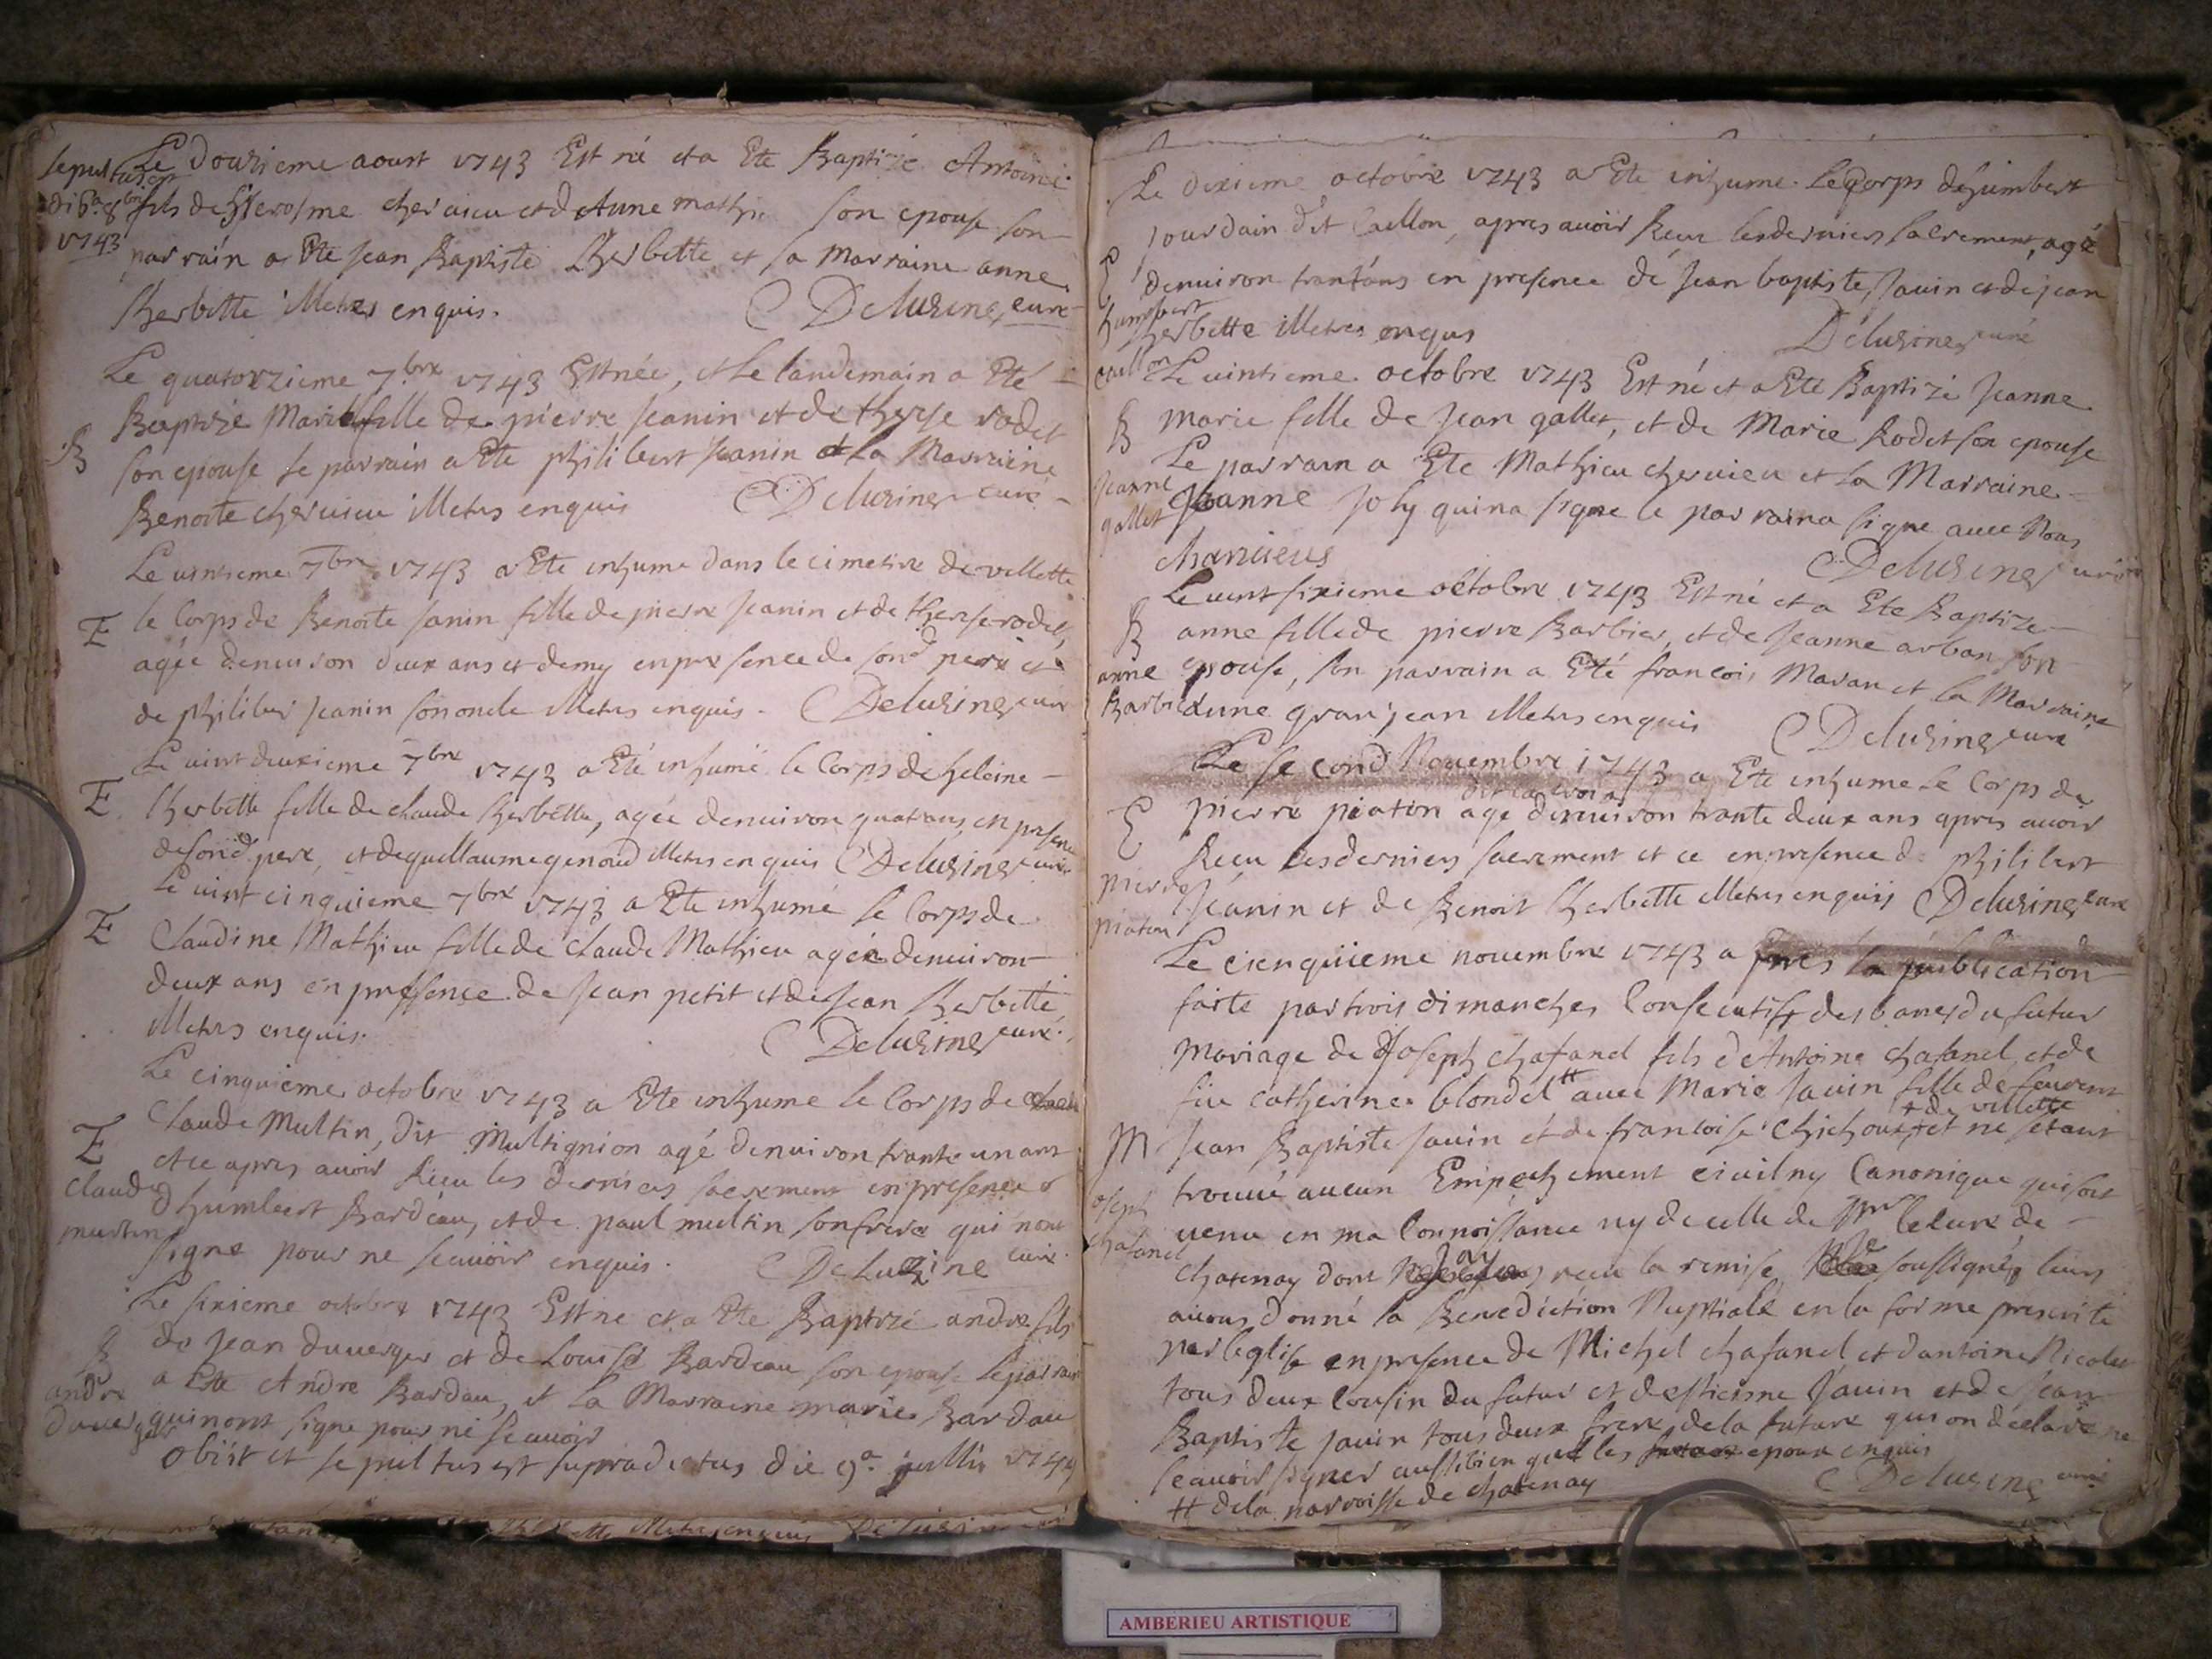 Le douzieme aoust 1743 Est né et a Ete Baptizé Antoine
sepultus est
die 6a 8bris
1743
fils de hierosme chervieu et d Anne mathieu son epouse son
parrain a Ete Jean Baptiste Berbette et sa Marraine anne
Berbette illetres enquis. Deluzines curé
Le quatorzieme 7bre 1743 Est née, et Le landemain a Eté
Baptizé Marie fille de pierre Jeanin et de therese rodet
B
son epouse le parrain a Ete philibert Jeanin et La Marraine
Benoite chervieu illetres enquis Deluzines curé
Le vintieme 7bre 1743 a Ete inhume dans le cimetire de villette
E
le Corps de Benoite Janin fille de pierre Jeanin et de therese rodet,
agée denviron deux ans et demy en presence de sond pere et
de philiber Jeanin son oncle illetres enquis. Deluzines curé
Le vint deuxieme 7bre 1743 a Eté inhumé le Corps de heleine
E
Berbette fille de claude Berbette, agée denviron quatrans, en presence
de sond pere, et de guillaume genoud illetres enquis Deluzines curé
Le vint cinquieme 7bre 1743 a Ete inhumé le Corps de
E
Claudine Mathieu fille de claude Mathieu agée denviron
deux ans en presence de Jean petit et de Jean Berbette
illetres enquis. Deluzines curé
Le cinquieme octobre 1743 a Ete inhumé le Corps de
E
Claude Multin, dit Multignion agé denviron trante un ans
et ce apres avoir Receu les derniers sacrement en presence
claude
multin
dhumbert Bardeau, et de paul multin son frere qui nont
signe pour ne scavoir enquis. Deluzine curé
Le sixieme octobre 1743 Est ne et a Ete Baptizé andre fils
B
de Jean duverger et de Louise Bardeau son epouse le parrain
andre
duverger
a Ete Andre Bardau, et la Marraine marie Bardau
qui nont signe pour ne scavoir
obiit et sepultus est supradictus die 9a jullii 1744
Le dixieme octobre 1743 a Ete inhume le Corps dhumbert
jourdain dit Caillon, apres avoir Receu les derniers sacrement, agé
E
humbert
caillon
denviron trantans en presence de Jean baptiste Javin et de jean
Berbette illetres enquis Deluzines curé
Le vintieme octobre 1743 Est né et a Ete Baptizé Jeanne
B
marie fille de Jean gallet, et de Marie Rodet son epouse
Le parrain a Ete Mathieu chervieu et La Marraine
Jeanne
gallet
Jeanne Joly qui na signe le parrain a signe avec Nous
Deluzines curé
Le vent sixieme octobre 1743 Est né et a Ete Baptize
B
anne fille de pierre Barbier, et de Jeanne arban son
anne
Barbier
epouse, son parrain a Eté francois Maran et la Marraine
anne granjean illetres enquis Deluzines curé
Le second Novembre 1743 a Ete inhume Le Corps de
E
pierre piaton age denviron trante deux ans apres avoir
Receu les derniers sacrement et ce en presence de philibert
pierre
piaton
Jeanin et de Benoit Berbette illetres enquis Deluzines curé
Le cienquieme novembre 1743 apres la publication
faite par trois dimanches Consecutifs des bancs du futur
Mariage de Joseph chafanel fils d'Antoine chafanel et de
fue catherine blondel # avec Marie Javin fille de feu
+ de villette
M
Jean Baptiste Javin et de francoise chichoux + et ne setant
Joseph
chafanel
trouvé aucun Empechement civil ny Canonique qui soit
venu en ma Connoissance ny de celle de Mr le curé de
chatenay dont Jay receu la remise, Je soussigné, leurs
avons donné la Benediction Nuptiale en la forme prescrite
par leglise en presence de Michel chafanel et dantoine Nicolas
tous deux cousin du futur et destienne Javin et de Jean
Baptiste javin tous deux frere de la future qui on declaré ne
scavoir signer aussi bien que les epoux enquis
# de la parroisse de chatenay Deluzine curé
AMBERIEU ARTISTIQUE